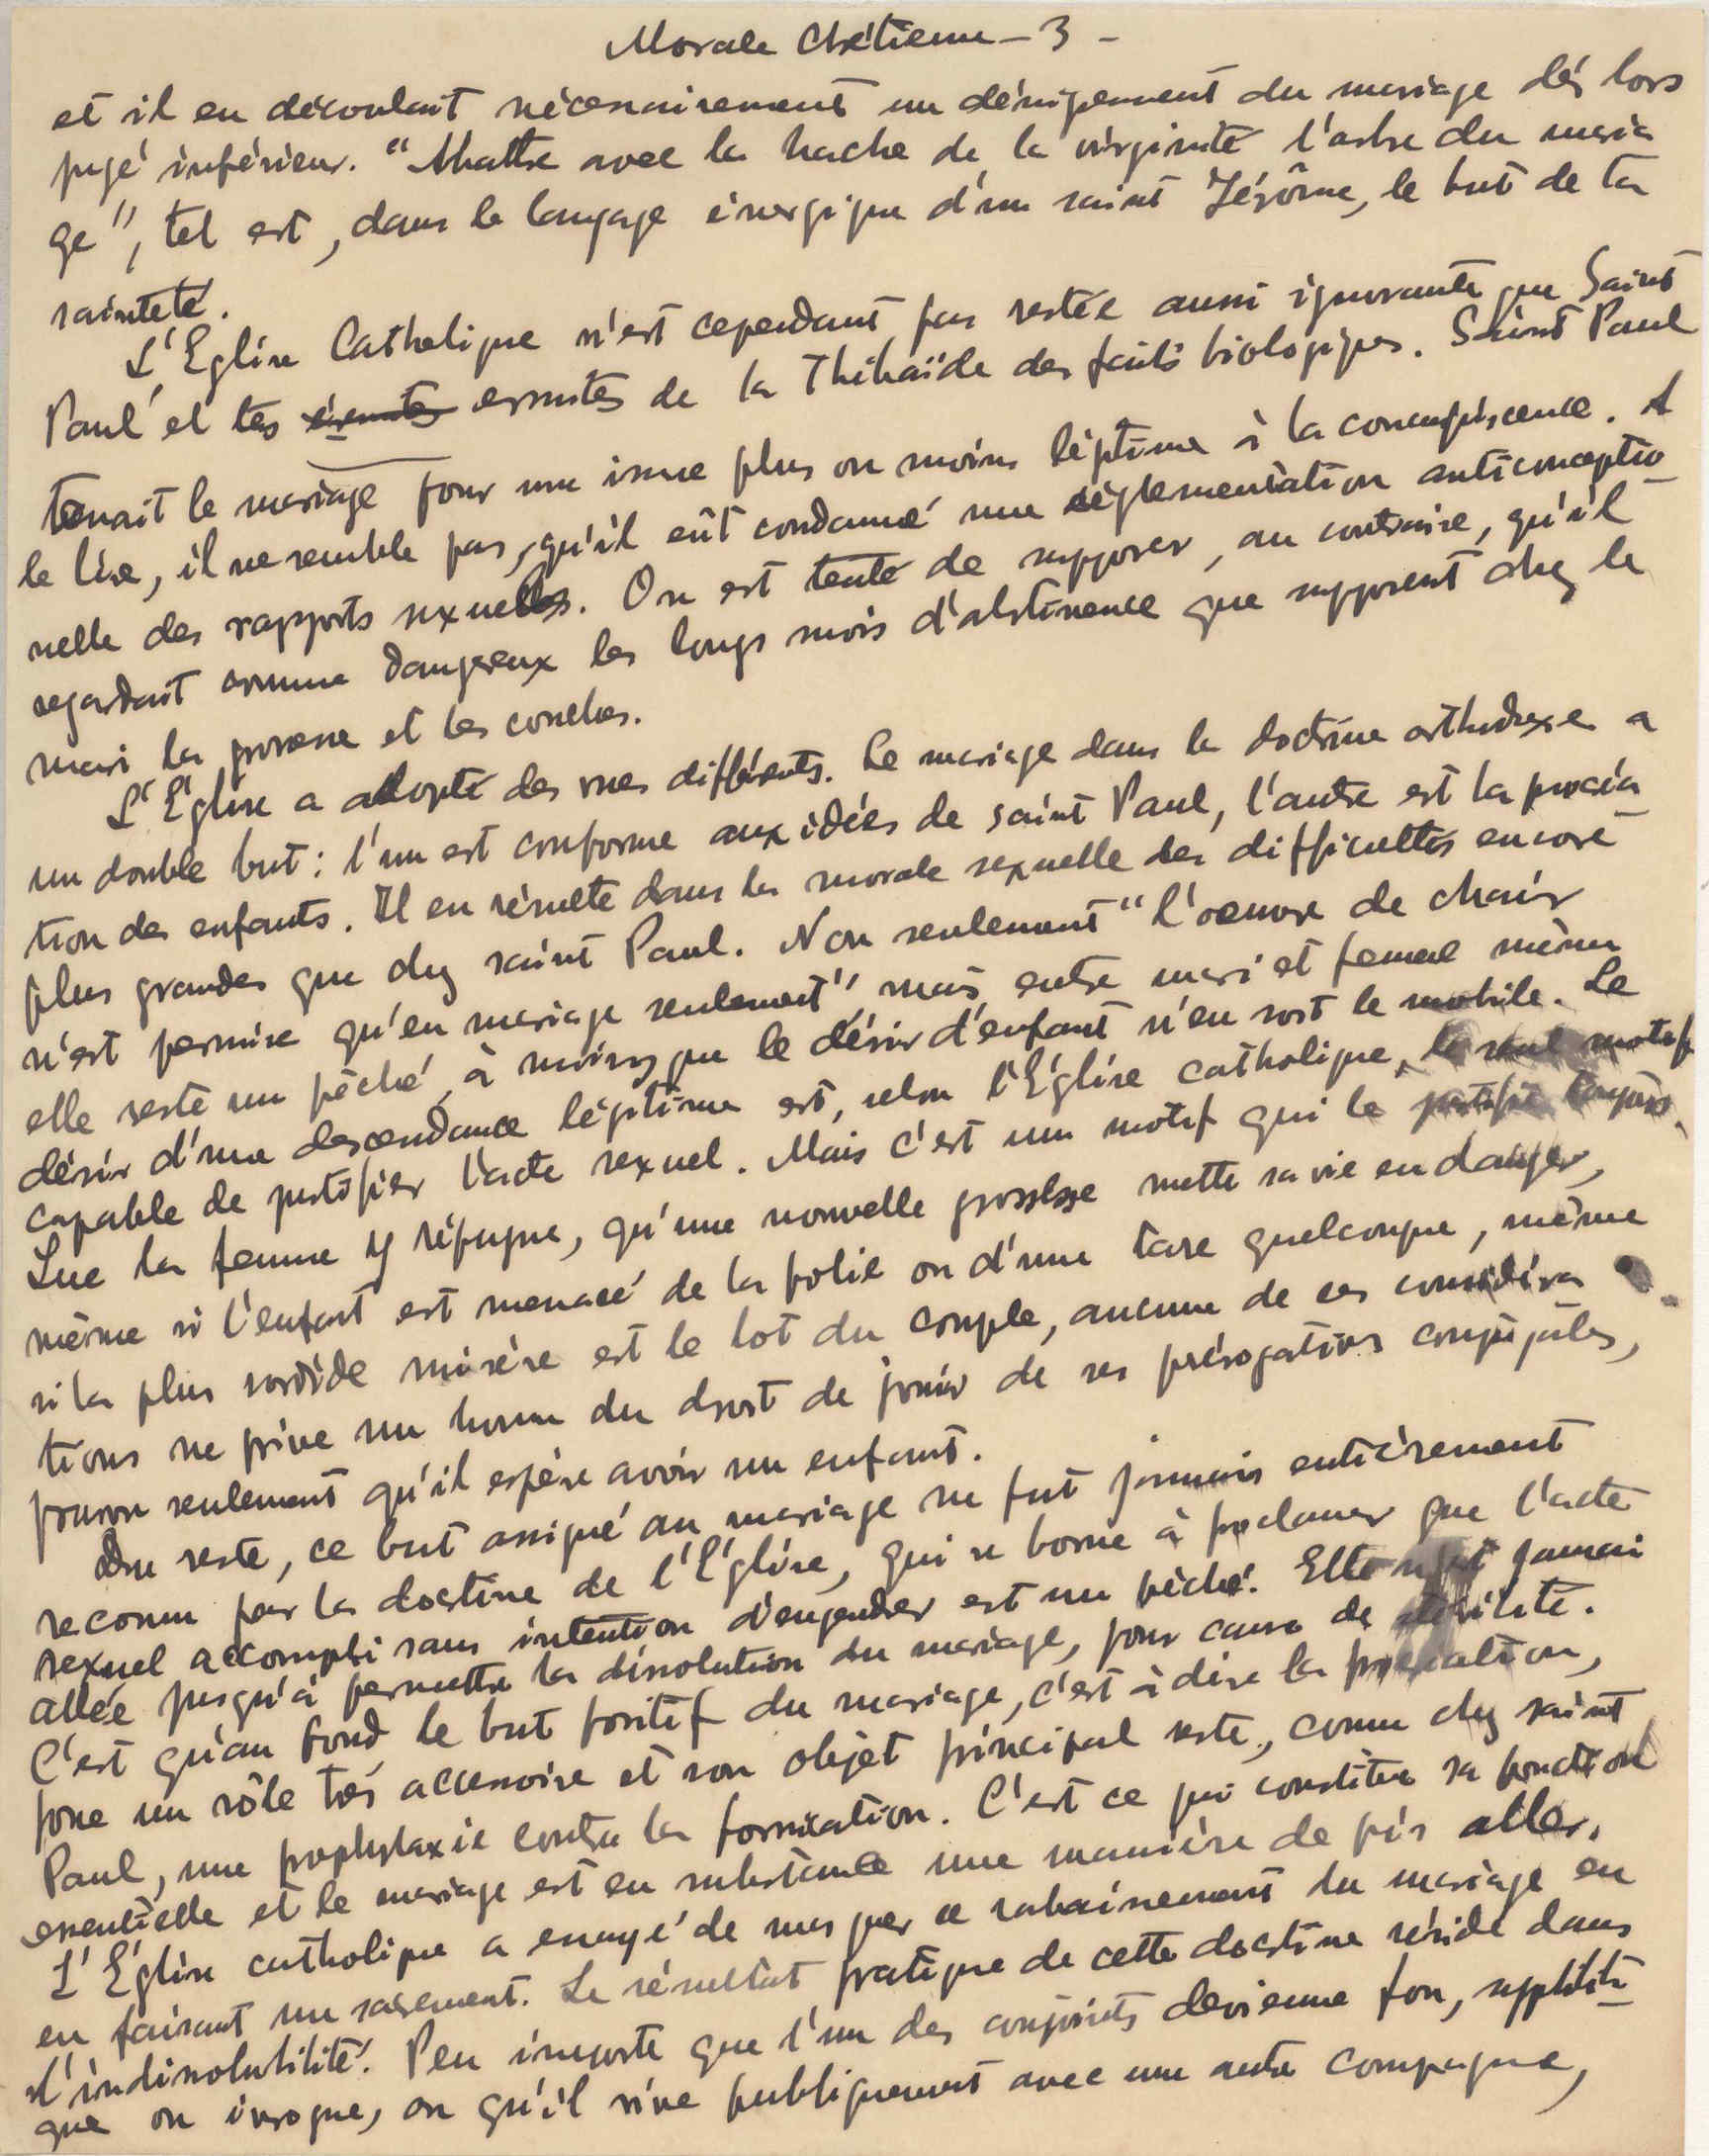 Morale Chrétienne - 3 -
et il en découlait nécessairement un dénigrement du mariage dès lors
jugé inférieur. "Abattre avec la hache de la virginité l'arbre du maria
ge", tel est, dans le langage énergique d'un saint Jérôme, le but de la
sainteté.
L'Eglise Catholique n'est cependant pas restée aussi ignorante que Saint
Paul et les ermites de la Thébaïde des faits biologiques. Saint Paul
tenait le mariage pour une issue plus ou moins légitime à la concupiscence. A
le lire, il ne semble pas, qu'il eût condamné une réglementation anticonceptio-
nelle des rapports sexuels. On est tenté de supposer, au contraire, qu'il
regardait comme dangereux les longs mois d'abstinence que supposent chez le
mari la grossesse et les couches.
L'Eglise a adopté des vues différents. Le mariage dans la doctrine orthodoxe a
un double but : l'un est conforme aux idées de saint Paul, l'autre est la procréa
tion des enfants. Il en résulte dans la morale sexuelle des difficultés encore
plus grandes que chez saint Paul. Non seulement "l'oeuvre de chair
n'est permise qu'en mariage seulement" mais, entre mari et femme même
elle reste un péché, à moins que le désir d'enfant n'en soit le mobile. Le
désir d'une descendance légitime est, selon l'Église catholique, le seul motif
capable de justifier l'acte sexuel. Mais c'est un motif qui le justifie toujours.
Que la femme y répugne, qu'une nouvelle grossesse mette sa vie en danger,
même si l'enfant est menacé de la folie ou d'une tare quelconque, même
si la plus sordide misère est le lot du couple, aucune de ces considéra
tions ne prive un homme du droit de jouir de ses prérogatives conjugales,
pourvu seulement qu'il espère avoir un enfant.
Du reste, ce but assigné au mariage ne fut jamais entièrement
reconnu par la doctrine de l'Église, qui se borne à proclamer que l'acte
sexuel accompli sans intention d'engendrer est un péché. Elle n'est jamais
allée jusqu'à permettre la dissolution du mariage, pour cause de stérilité.
C'est qu'au fond le but positif du mariage, c'est à dire la procréation,
joue un rôle très accessoire et son objet principal reste, comme chez saint
Paul, une prophylaxie contre la fornication. C'est ce qui constitue sa fonction
essentielle et le mariage est en substance une manière de pis aller.
L'Église catholique a essayé de masquer ce rabaissement du mariage en
en faisant un sacrement. Le résultat pratique de cette doctrine réside dans
l'indissolubilité. Peu importe que l'un des conjoints devienne fou, syphiliti-
que ou ivrogne, ou qu'il vive publiquement avec une autre compagne,